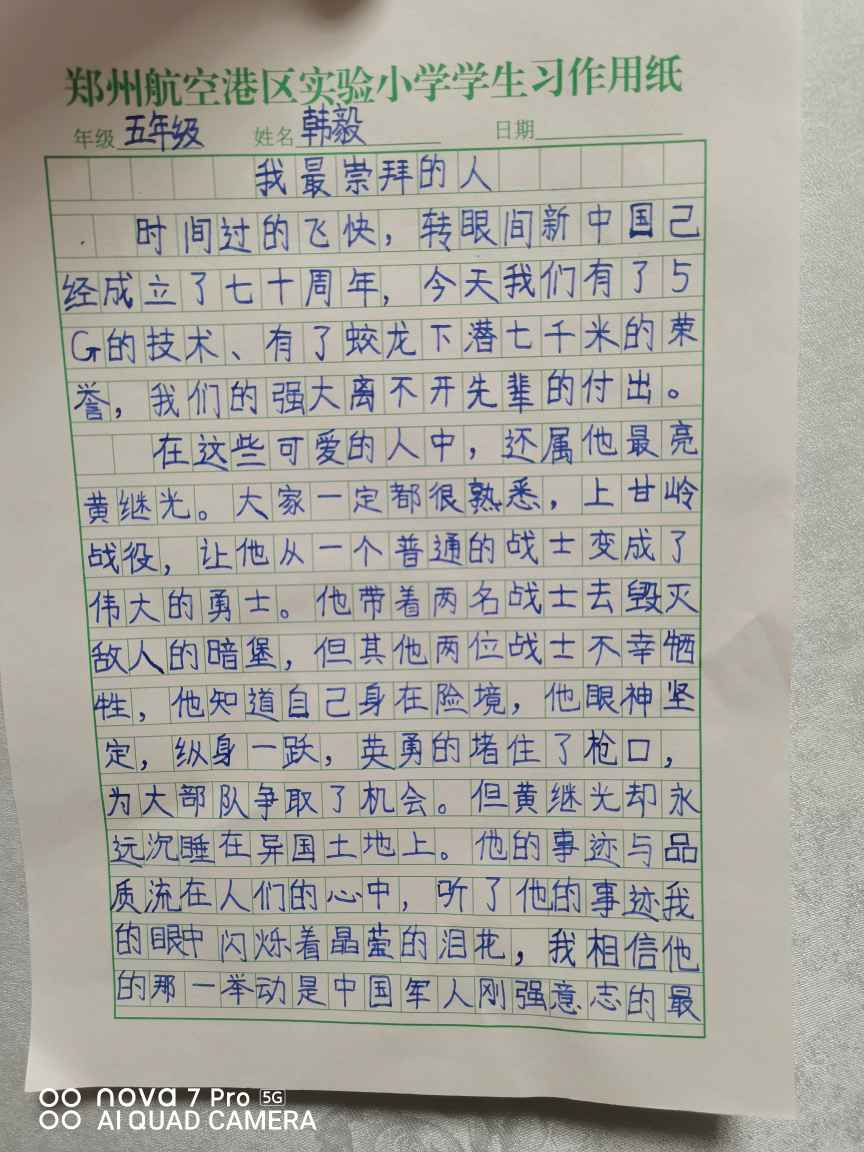 郑州航空港区实验小学学生习作用纸
年级 五年级 姓名 韩毅 日期
我最崇拜的人
时间过的飞快，转眼间新中国己
经成立了七十周年，今天我们有了5
G的技术、有了蛟龙下潜七千米的荣
誉，我们的强大离不开先辈的付出。
在这些可爱的人中，还属他最亮
黄继光。大家一定都很熟悉，上甘岭
战役，让他从一个普通的战士变成了
伟大的勇士。他带着两名战士去毁灭
敌人的暗堡，但其他两位战士不幸牺
牲，他知道自己身在险境，他眼神坚
定，纵身一跃，英勇的堵住了枪口，
为大部队争取了机会。但黄继光却永
远沉睡在异国土地上。他的事迹与品
质流在人们的心中，听了他的事迹我
的眼中闪烁着晶莹的泪花，我相信他
的那一举动是中国军人刚强意志的最
nova 7 Pro 5G
AI QUAD CAMERA